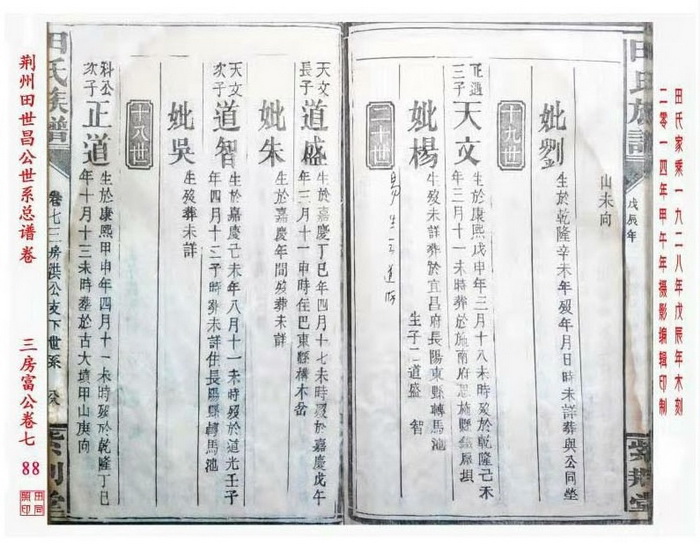 田氏家乘一九二八年戊辰年木刻
二零一四年甲午年摄影编辑印制
田氏族譜
戊辰年
紫荆堂
山未向
妣劉
生於乾隆辛未年歿年月日時未詳葬與公同塋
十九世
正道三子
天文
生於康熙戊申年三月十八未時歿於乾隆己未
年三月十一未時葬於施南府恩施縣
妣楊
生歿未詳葬於宜昌府長陽東縣轉馬池
生子二道盛 智
二十世
天文長子
道盛
生於嘉慶丁巳年四月十七未時歿於嘉慶戊午
年三月十一申時住巴東縣櫸木岙
妣朱
生於嘉慶年間歿葬未詳
天文次子
道智
生於嘉慶己未年八月十一未時歿於道光壬子
年四月十二子時葬未詳住長陽縣轉馬池
妣吳
生歿葬未詳
十八世
科公次子
正道
生於康熙甲申年四月十一未時歿於乾隆丁巳
年十月十三未時葬於古大填甲山庚向
田氏族譜
卷七三房洪公支下世系
紫荆堂
荆州田世昌公世系总谱卷
三房富公卷七 88